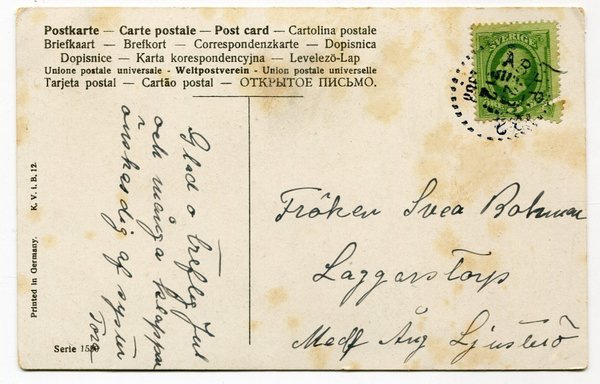 Postkarte — Carte postale — Post card — Cartolina postale
Briefkaart — Brefkort — Correspondenzkarte — Dopisnica
Dopisnice — Karta korespondencyjna — Levelező-Lap
Unione postale universale - Weltpostverein - Union postale universelle
Tarjeta postal — Cartão postal — ОТКРЫТОЕ ПИСЬМО.
SVERIGE
Glad o treflig Jul
och många klappar
önskas dig af syster
Tora
Fröken Svea Bohman
Laggarstorp
Ång Ljusterö
Printed in Germany. K. V. i. B. 12.
Serie